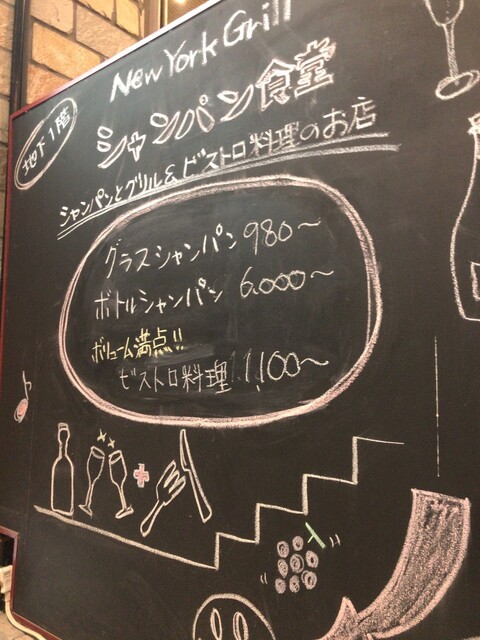 New York Grill
地下1階
シャンパン食堂
シャンパンとグリル&ビストロ料理のお店
グラスシャンパン 980〜
ボトルシャンパン 6,000〜
ボリューム満点!!
ビストロ料理 1,100〜